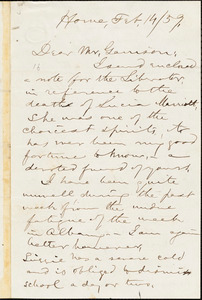 Home, Feb 14/59,
Dear Mr. Garrison,
I send enclosed
a note for the Liberator,
in reference to the
death of Lucia
She was one of the
choicest spirits, it
has ever been my good
fortune to know, — a
devoted friend of yours.
I have been quite
unwell during the past
week from the undue
fatigue of the week
in Albany, — I am again
better however,
has a severe cold
and is obliged to dismiss
school a day or two,